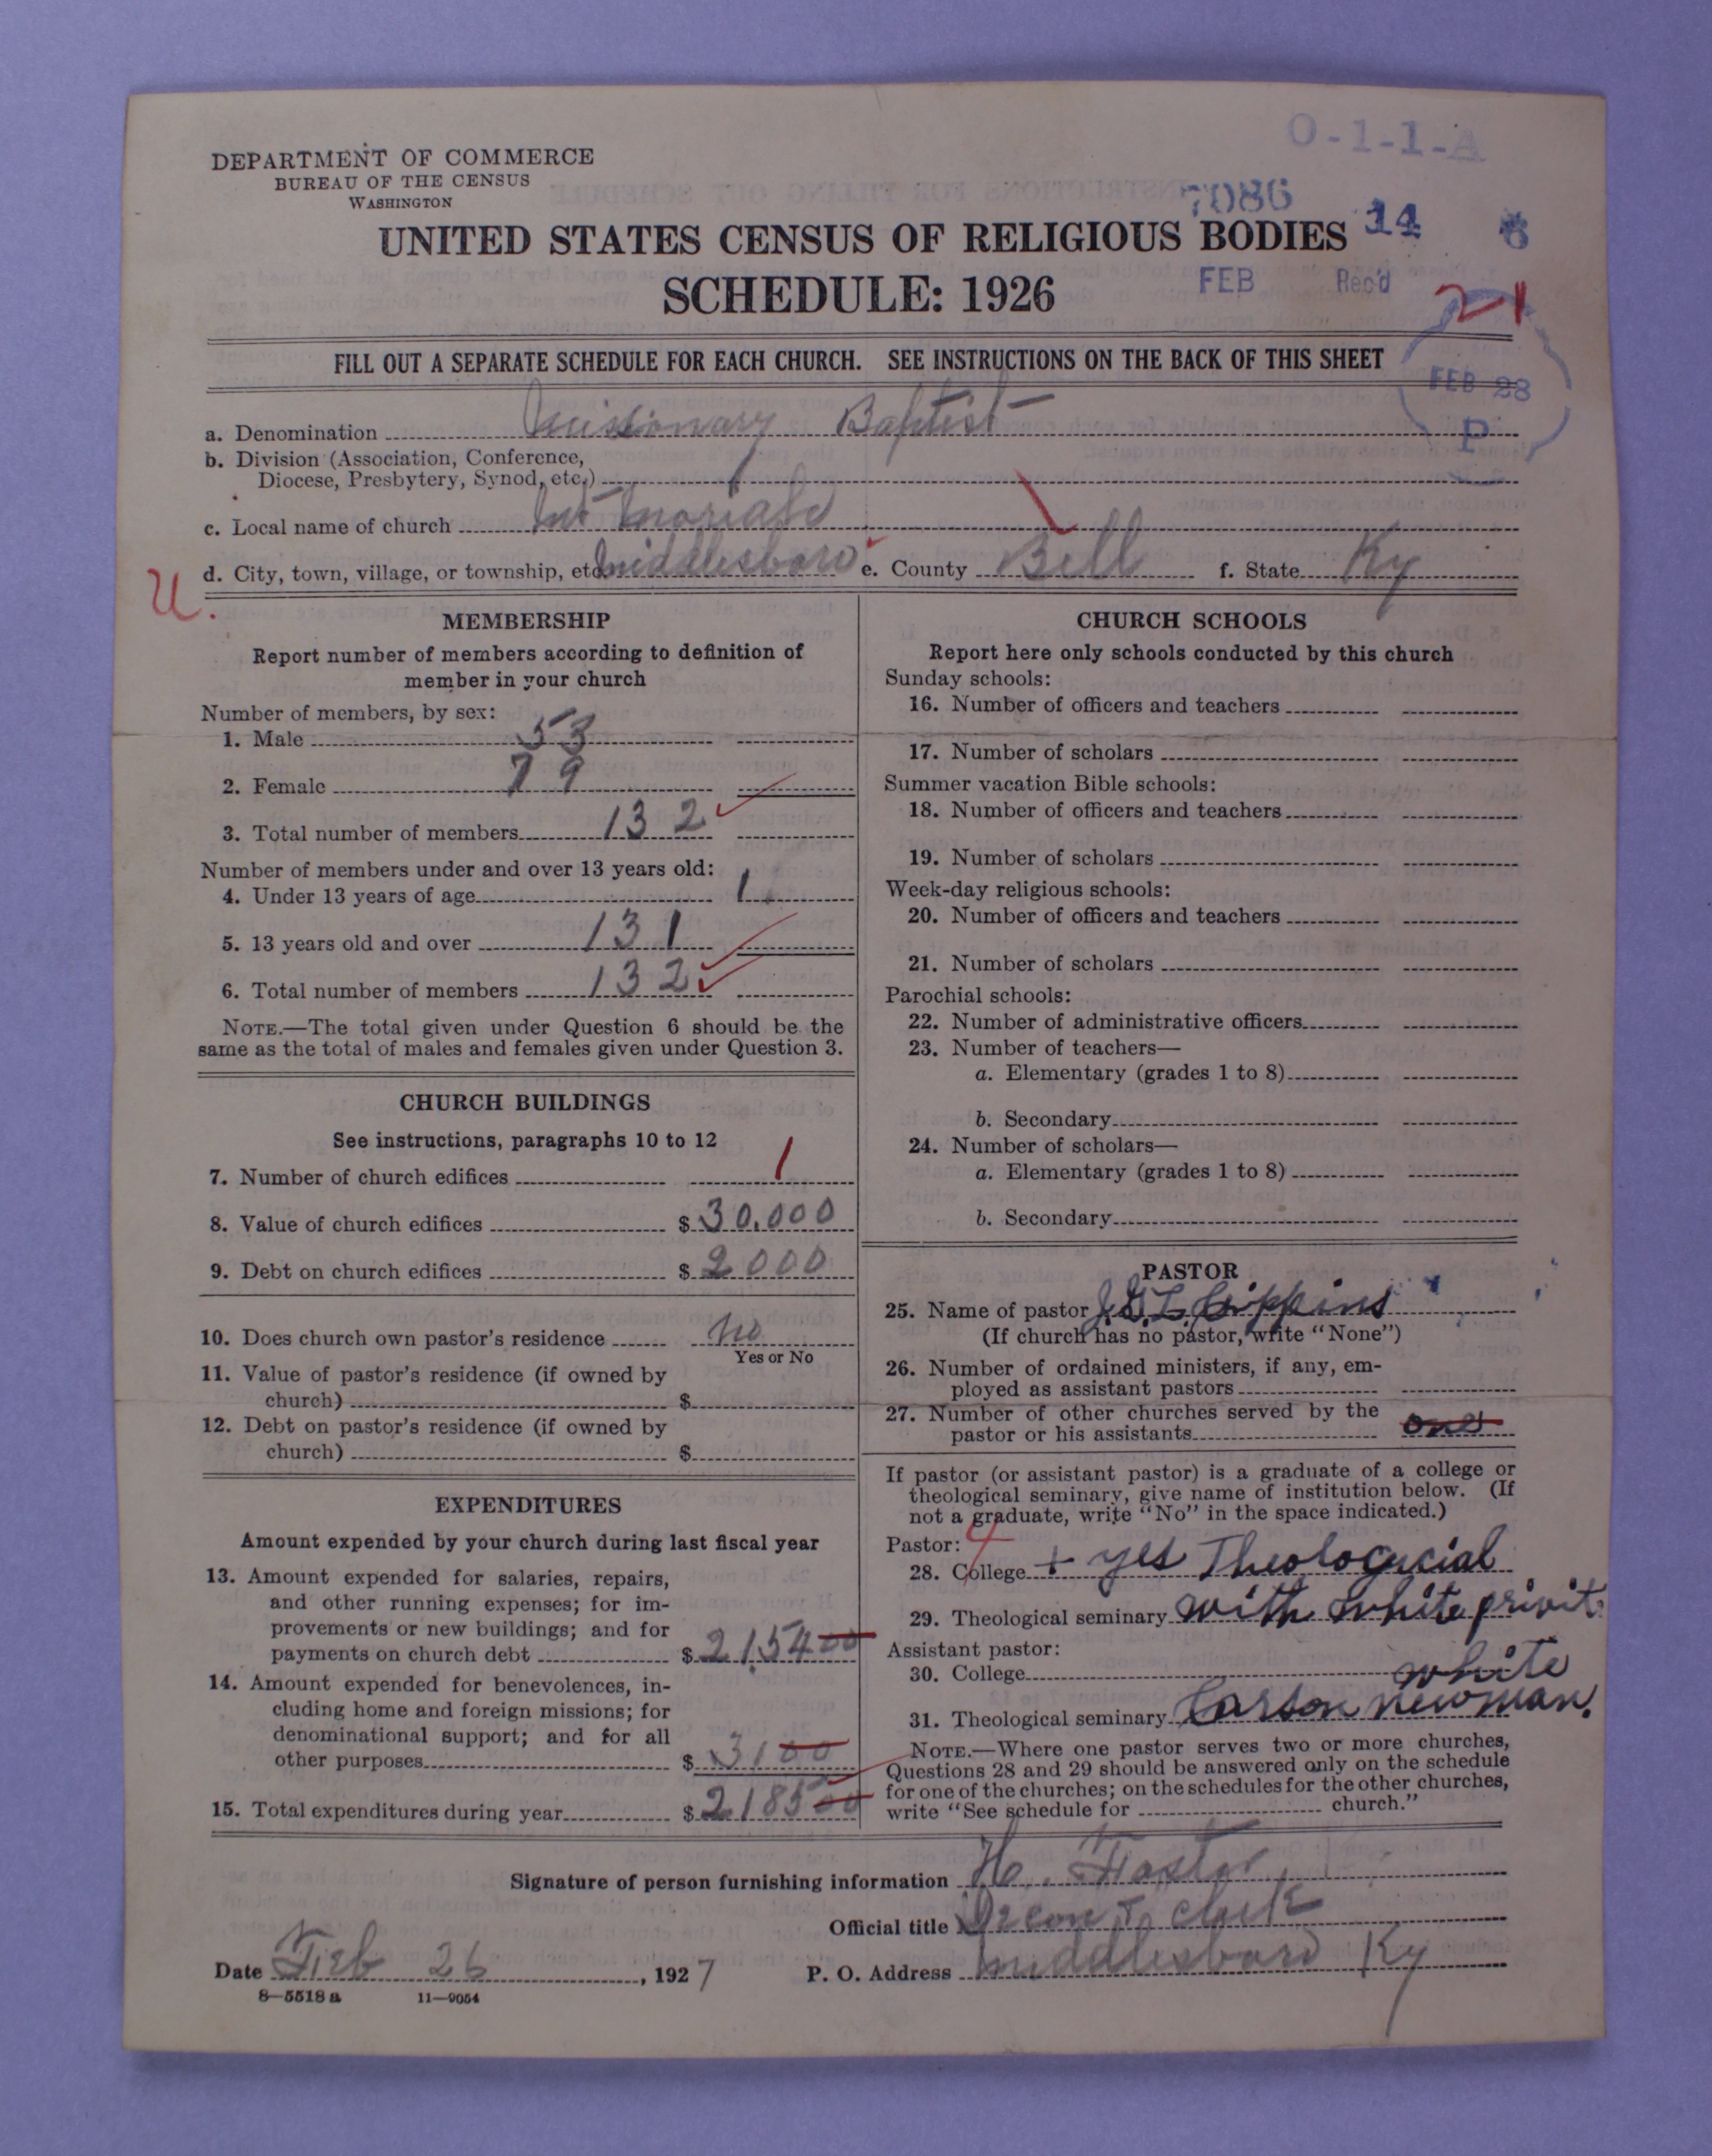 O-1-1-A
DEPARTMENT OF COMMERCE
BUREAU OF THE CENSUS
WASHINGTON
7086
UNITED STATES CENSUS OF RELIGIOUS BODIES
14
8
SCHEDULE: 1926
FEB Rec'd
21
FILL OUT A SEPARATE SCHEDULE FOR EACH CHURCH. SEE INSTRUCTIONS ON THE BACK OF THIS SHEET
FEB 28
P
a. Denomination Missionary Baptist
b. Division (Association, Conference,
Diocese, Presbytery, Synod, etc.)
c. Local name of church Mt Moriah
d. City, town, village, or township, etc. Middlesboro e. County Bell f. State Ky
U.
MEMBERSHIP
Report number of members according to definition of
member in your church
Number of members, by sex:
1. Male 53
2. Female 79
3. Total number of members 132
Number of members under and over 13 years old:
4. Under 13 years of age 1
5. 13 years old and over 131
6. Total number of members 132
NOTE.—The total given under Question 6 should be the
same as the total of males and females given under Question 3.
CHURCH BUILDINGS
See instructions, paragraphs 10 to 12
7. Number of church edifices 1
8. Value of church edifices $ 30,000
9. Debt on church edifices $ 2000
10. Does church own pastor's residence No
Yes or No
11. Value of pastor's residence (if owned by
church) $
12. Debt on pastor's residence (if owned by
church) $
EXPENDITURES
Amount expended by your church during last fiscal year
13. Amount expended for salaries, repairs,
and other running expenses; for im-
provements or new buildings; and for
payments on church debt $ 2,154 00
14. Amount expended for benevolences, in-
cluding home and foreign missions; for
denominational support; and for all
other purposes $ 31 00
15. Total expenditures during year $ 2185 00
CHURCH SCHOOLS
Report here only schools conducted by this church
Sunday schools:
16. Number of officers and teachers
17. Number of scholars
Summer vacation Bible schools:
18. Number of officers and teachers
19. Number of scholars
Week-day religious schools:
20. Number of officers and teachers
21. Number of scholars
Parochial schools:
22. Number of administrative officers
23. Number of teachers—
a. Elementary (grades 1 to 8)
b. Secondary
24. Number of scholars—
a. Elementary (grades 1 to 8)
b. Secondary
PASTOR
25. Name of pastor
(If church has no pastor, write "None")
26. Number of ordained ministers, if any, em-
ployed as assistant pastors
27. Number of other churches served by the
pastor or his assistants one
If pastor (or assistant pastor) is a graduate of a college or
theological seminary, give name of institution below. (If
not a graduate, write "No" in the space indicated.)
Pastor: 4
28. College + yes Theologucial
29. Theological seminary with white privit
Assistant pastor:
30. College white
31. Theological seminary Carson Newman.
NOTE.—Where one pastor serves two or more churches,
Questions 28 and 29 should be answered only on the schedule
for one of the churches; on the schedules for the other churches,
write "See schedule for church."
Signature of person furnishing information H. Fastor
Official title clerk
Date Feb 26, 1927 P. O. Address Middlesboro Ky
8-5518 a 11-9054